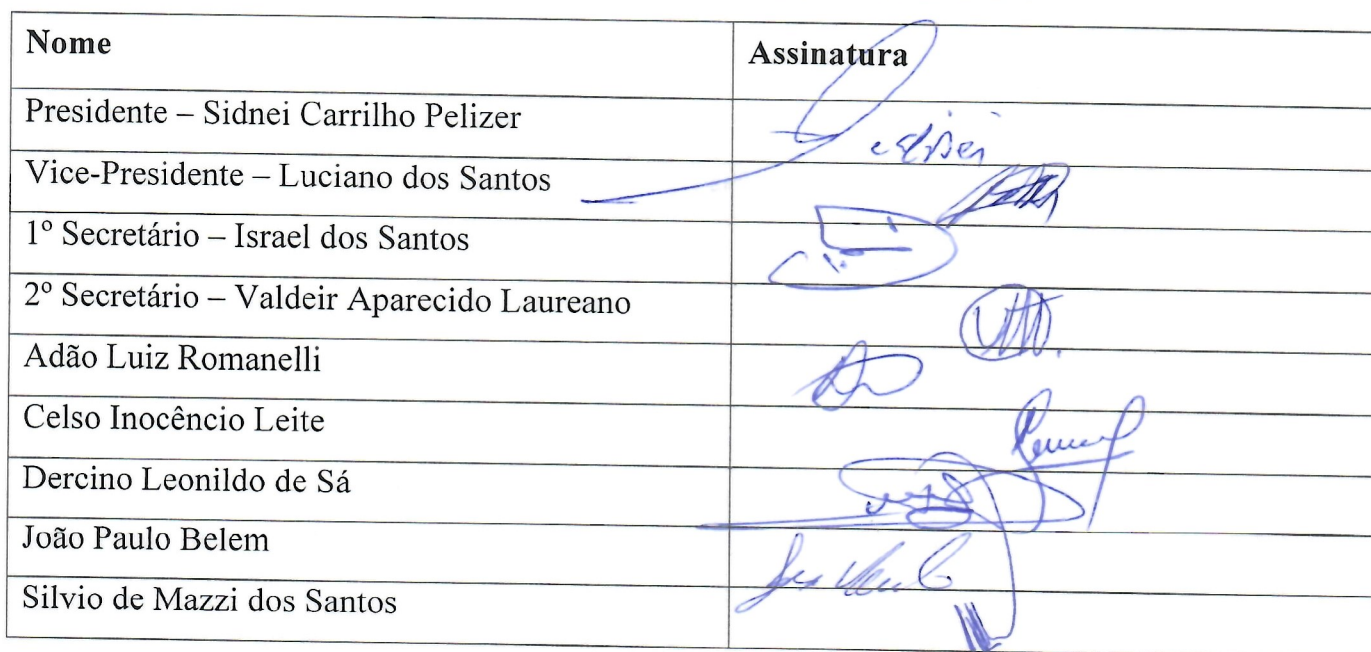 Nome Assinatura
Presidente – Sidnei Carrilho Pelizer
Vice-Presidente – Luciano dos Santos
1º Secretário – Israel dos Santos
2º Secretário – Valdeir Aparecido Laureano
Adão Luiz Romanelli
Celso Inocêncio Leite
Dercino Leonildo de Sá
João Paulo Belem
Silvio de Mazzi dos Santos